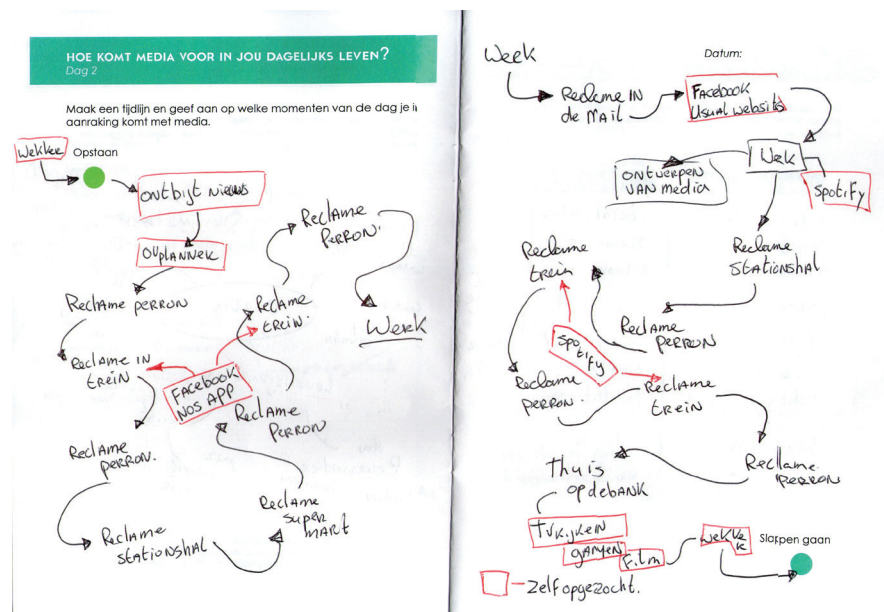 HOE KOMT MEDIA VOOR IN JOU DAGELIJKS LEVEN?
Dag 2
Maak een tijdlijn en geef aan op welke momenten van de dag je i
aanraking komt met media.
Wekker
Opstaan
ontbijt nieuws
OVplanner
Reclame perron
Reclame in
trein
Facebook
NOS APP
Reclame
perron.
Reclame
stationshal
Reclame
super
mart
Reclame
perron
Reclame
trein.
Reclame
perron.
Werk
Week
Datum:
Reclame in
de mail
Facebook
usual websits
Wek
ontwerpen
van media
Spotify
Reclame
stationshal
Reclame
perron
Reclame
trein
Spotify
Reclame
perron.
Reclame
trein
Reclame
perron
Thuis
op de bank
TV kijkein
gamen
Film
wekke
k
Slapen gaan
- Zelf opgezocht.